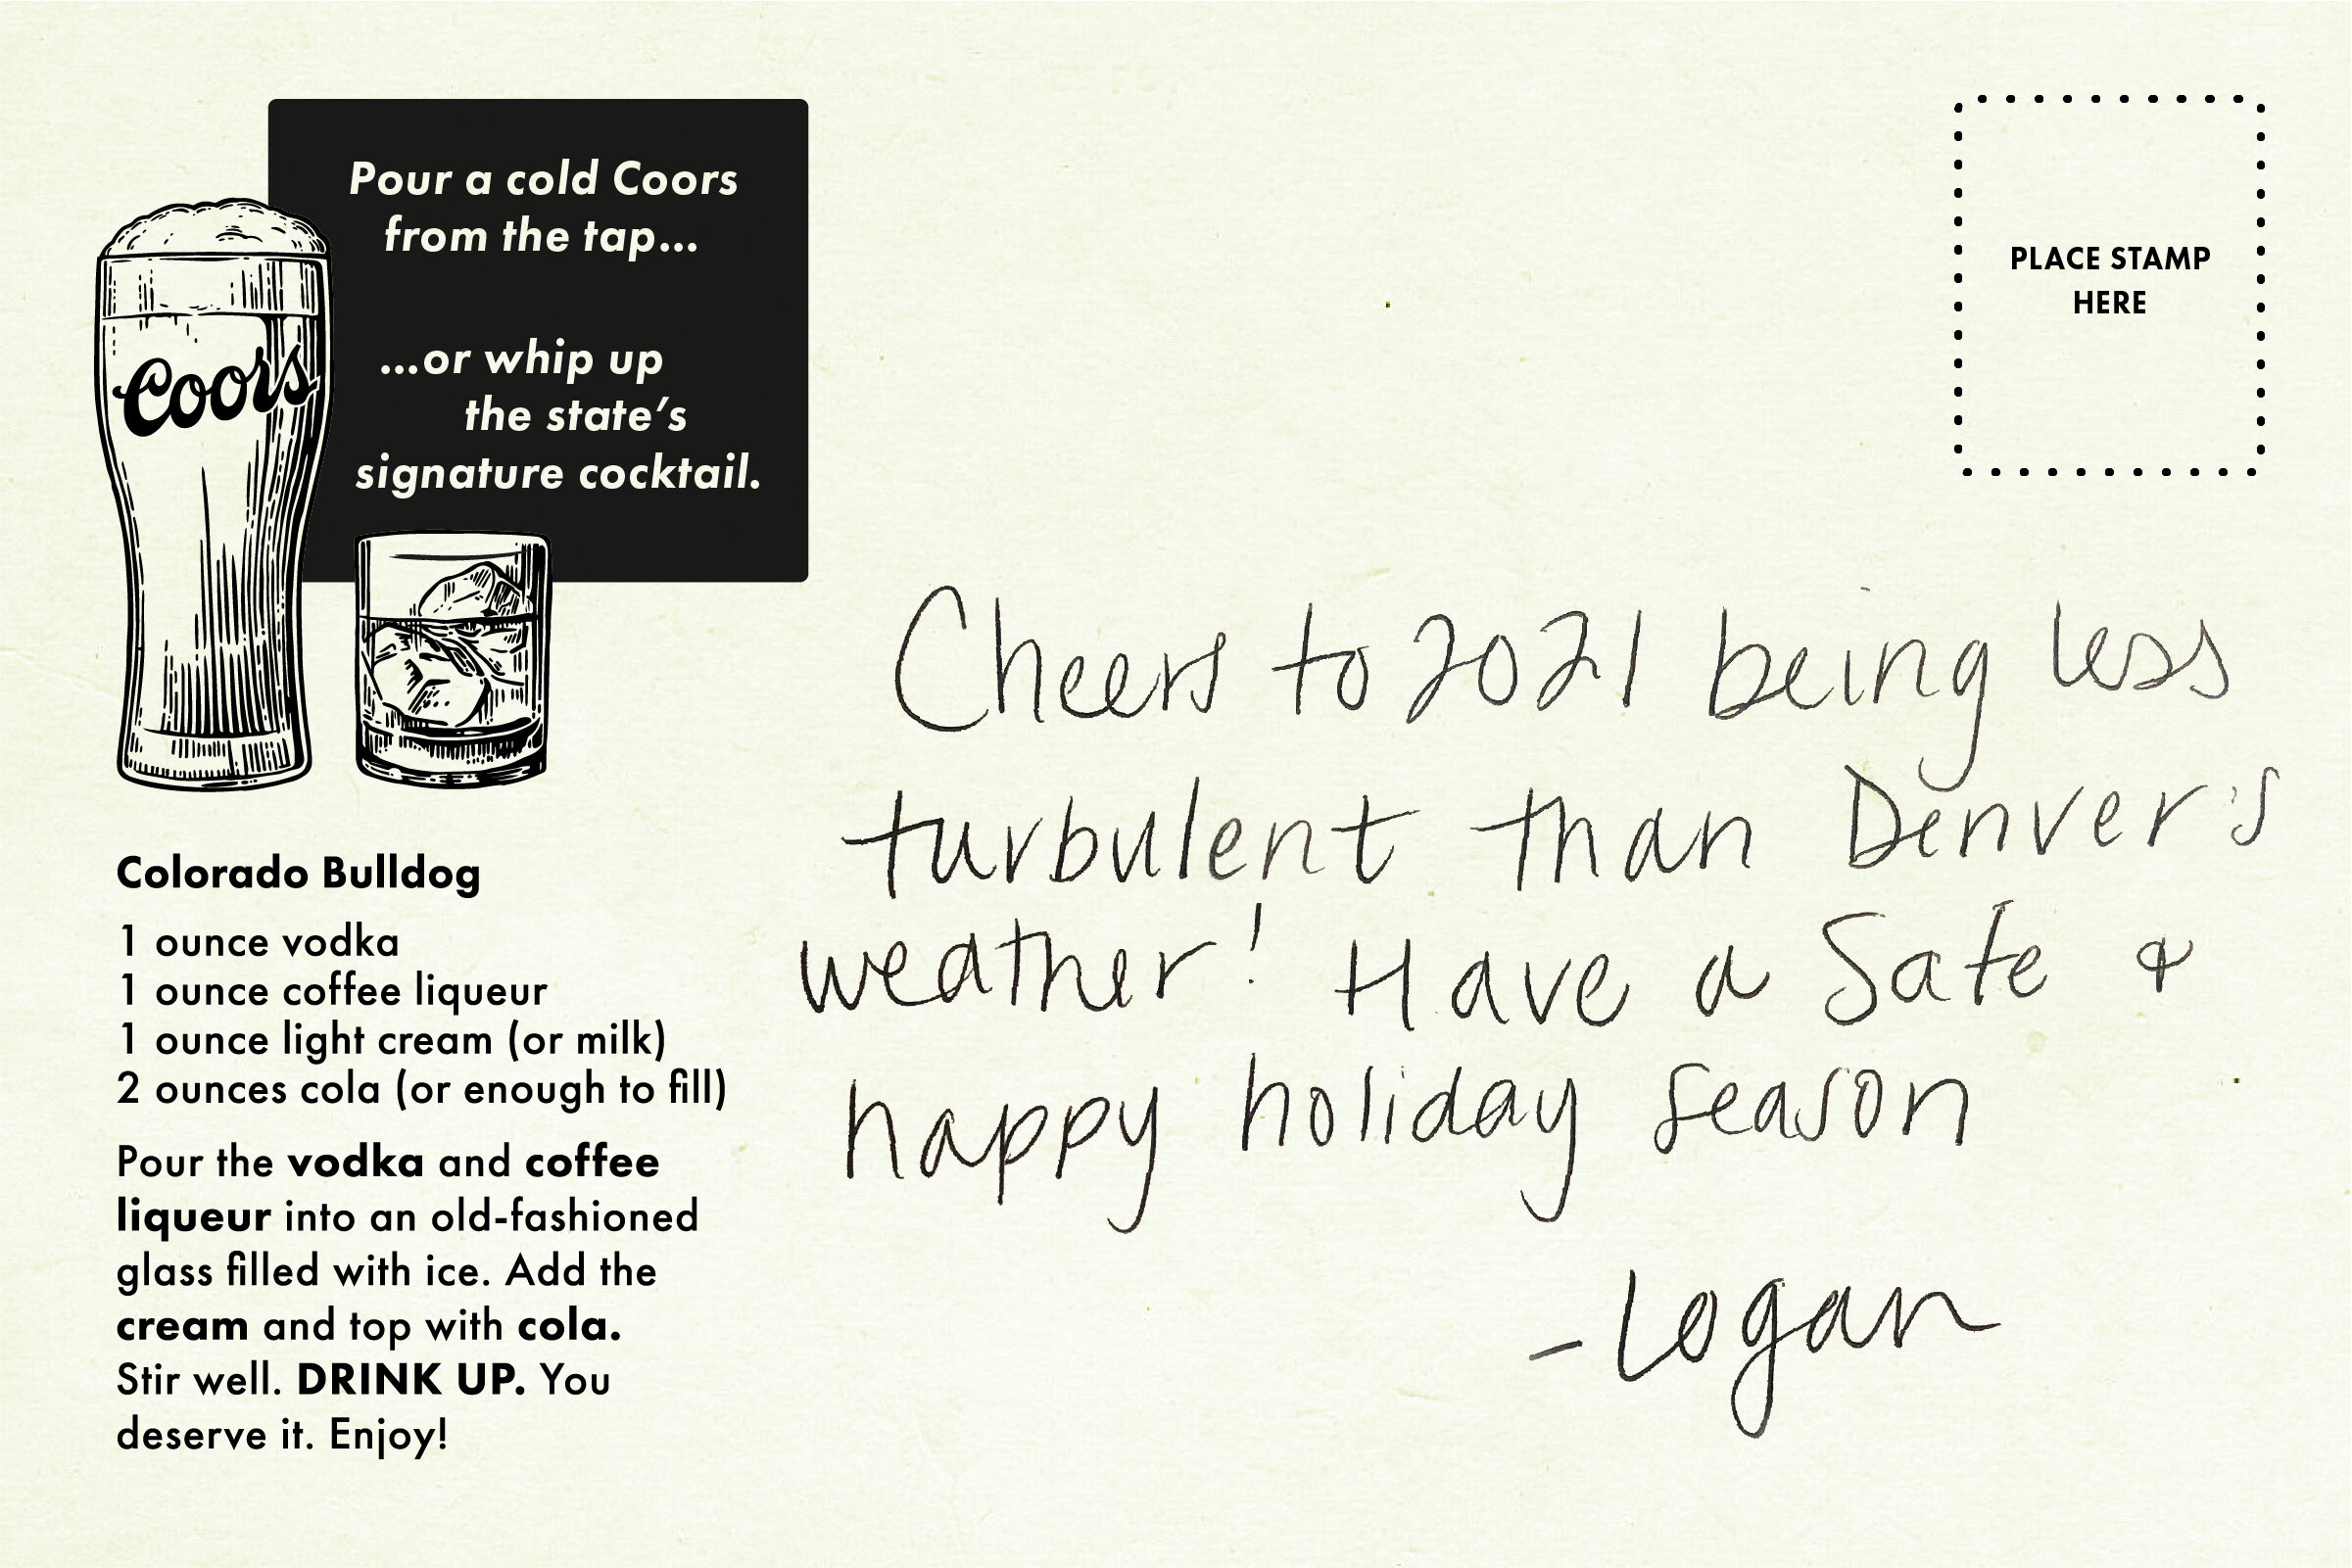 Pour a cold Coors
from the tap...
...or whip up
the state's
signature cocktail.
Coors
Colorado Bulldog
1 ounce vodka
1 ounce coffee liqueur
1 ounce light cream (or milk)
2 ounces cola (or enough to fill)
Pour the vodka and coffee
liqueur into an old-fashioned
glass filled with ice. Add the
cream and top with cola.
Stir well. DRINK UP. You
deserve it. Enjoy!
PLACE STAMP
HERE
Cheers to 2021 being less
turbulent than Denver's
weather! Have a Safe &
happy holiday season
-Logan